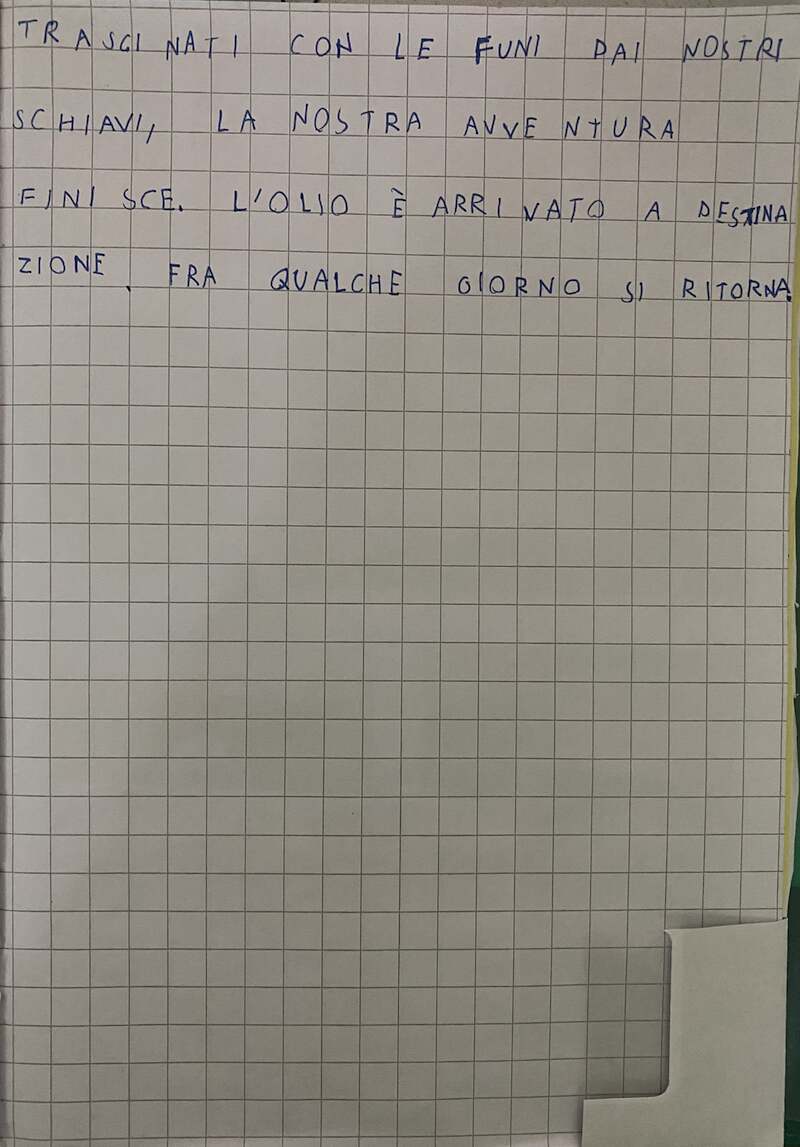 TRASCINATI CON LE FUNI DAI NOSTRI
SCHIAVI, LA NOSTRA AVVENTURA
FINISCE. L'OLIO È ARRIVATO A DESTINA
ZIONE. FRA QUALCHE GIORNO SI RITORNA.